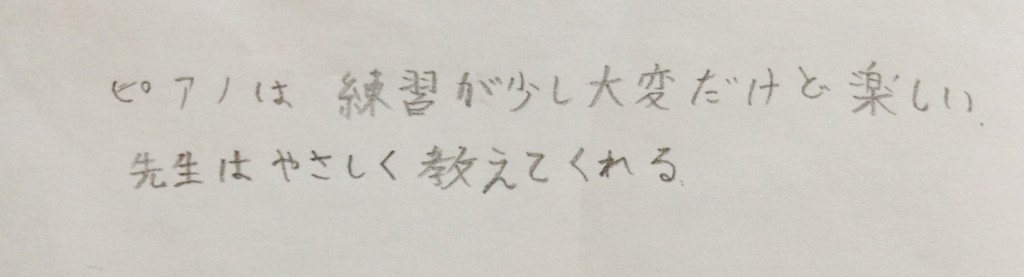 ピアノは 練習が少し大変だけど楽しい.
先生はやさしく教えてくれる.